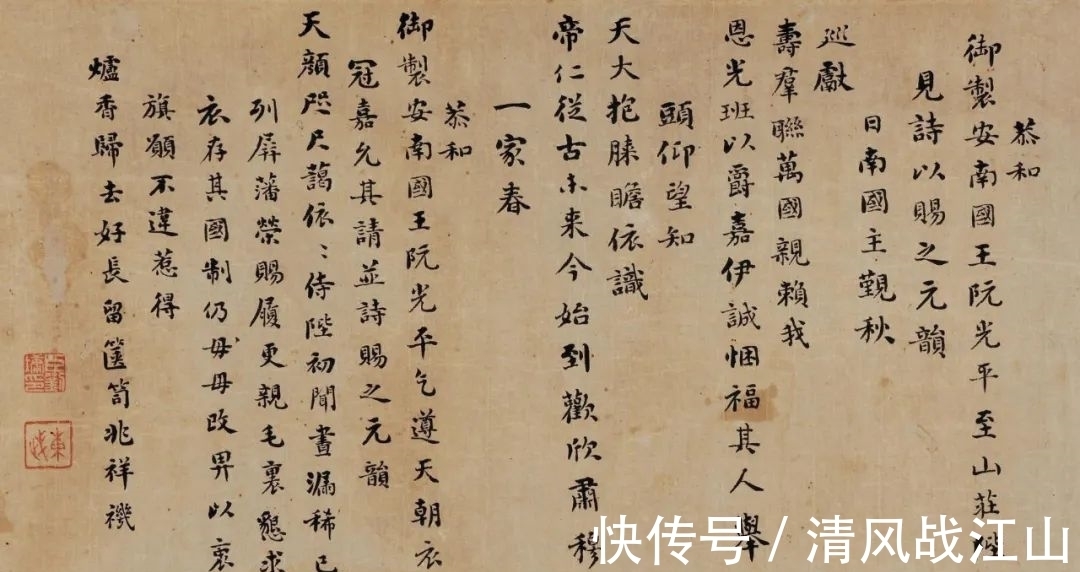 恭和
御製安南國王阮光平至山莊陛
見詩以賜之元韻
日南國主覲秋
巡獻
壽羣聯萬國親賴我
恩光班以爵嘉伊誠悃福其人舉
頭仰望知
天大抱膝瞻依識
帝仁從古未来今始到歡欣肅穆
一家春
恭和
御製安南國王阮光平乞遵天朝衣
冠嘉允其請並詩賜之元韻
天顔咫尺藹依〻侍陛初聞晝漏稀已
列屏藩榮賜履更親毛裏懇求
衣存其國制仍毋毋改畀以裏
旗願不違惹得
爐香歸去好長留篋笥兆祥禨
快传号/清风战江山